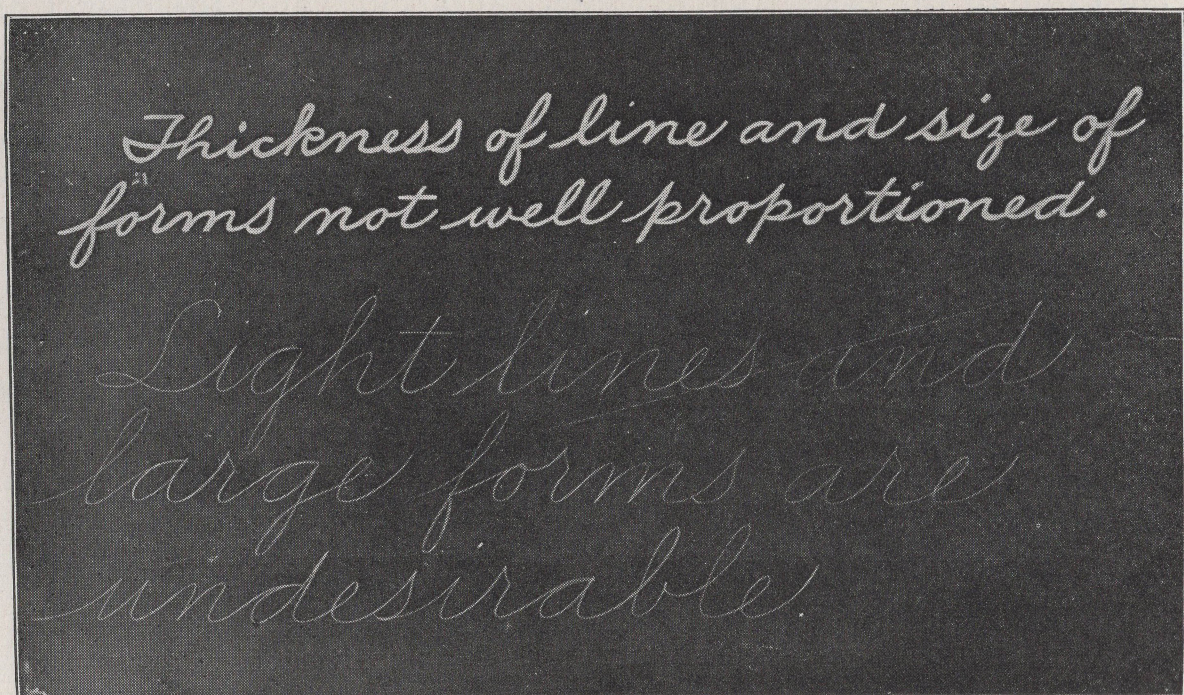 Thickness of line and size of
forms not well proportioned.
Light lines and
large forms are
undesirable.